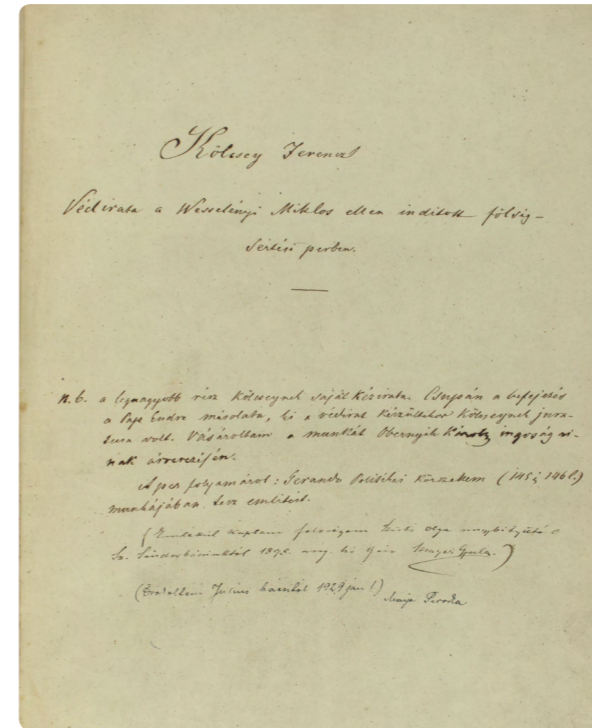 Kölcsey Ferencz
Védirata a Wesselényi Miklos ellen inditott fölség-
sértési perben.
n.b. a legnagyobb rész Kölcseynek saját kézirata. Csupán a befejezés
a Pap Endre másolata, ki a védirat készültekor Kölcseynek jura-
tusa volt. Vásároltam a munkát Obernyik Károly ingóságai-
nak árverezésén.
A per folyamáról: Gerando Politikai (145 és 146 l.)
munkájában tesz emlitést.
(Emlékül kaptam Olga
1895. aug.)
(Eredetileg Julius bácsitól 1929 jan 1.)